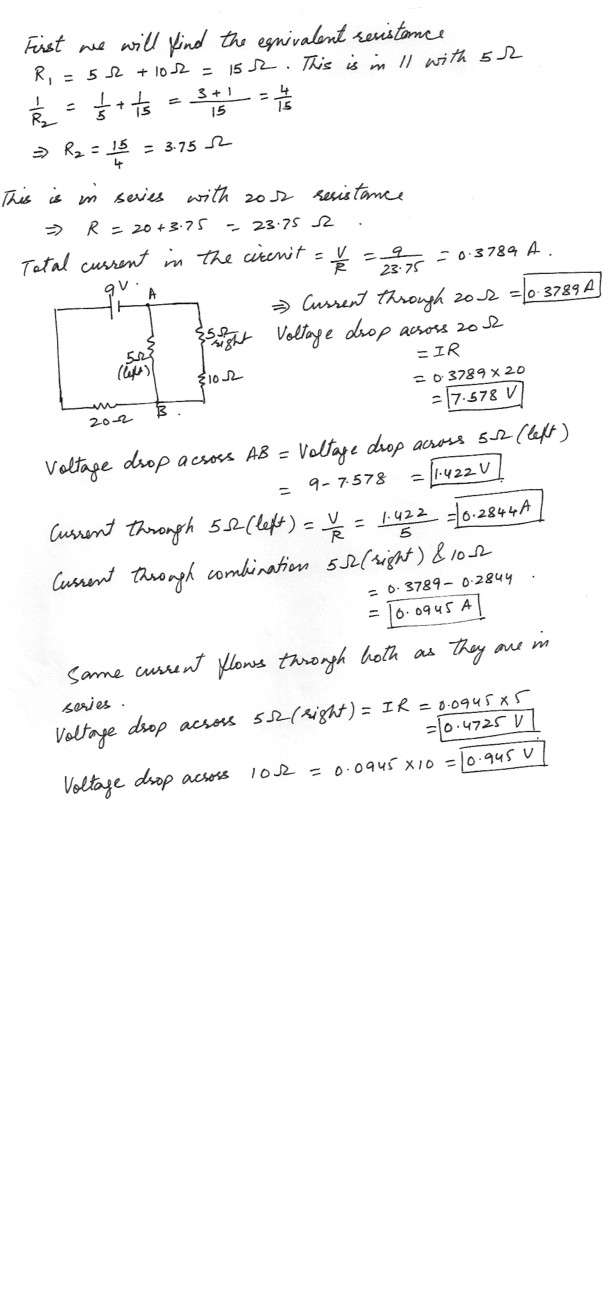 First we will find the equivalent resistance
R₁ = 5 Ω + 10 Ω = 15 Ω. This is in || with 5 Ω
1/R₂ = 1/5 + 1/15 = (3+1)/15 = 4/15
⇒ R₂ = 15/4 = 3.75 Ω
This is in series with 20 Ω resistance
⇒ R = 20 + 3.75 = 23.75 Ω.
Total current in the circuit = V/R = 9/23.75 = 0.3789 A.
9V.
A
5Ω (left)
5Ω right
10 Ω
20 Ω
B.
⇒ Current through 20 Ω = 0.3789 A
Voltage drop across 20 Ω
= IR
= 0.3789 × 20
= 7.578 V
Voltage drop across AB = Voltage drop across 5 Ω (left)
= 9 - 7.578 = 1.422 V
Current through 5 Ω (left) = V/R = 1.422/5 = 0.2844 A
Current through combination 5 Ω (right) & 10 Ω
= 0.3789 - 0.2844.
= 0.0945 A
Same current flows through both as they are in
series.
Voltage drop across 5 Ω (right) = IR = 0.0945 × 5
= 0.4725 V
Voltage drop across 10 Ω = 0.0945 × 10 = 0.945 V